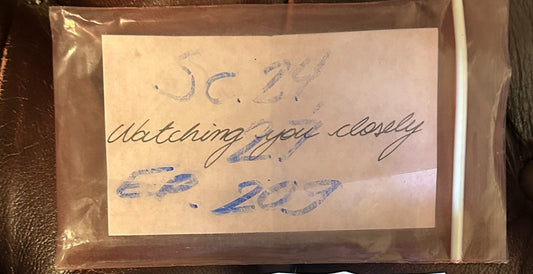 Sc. 24,
Watching you closely
27
EP. 207